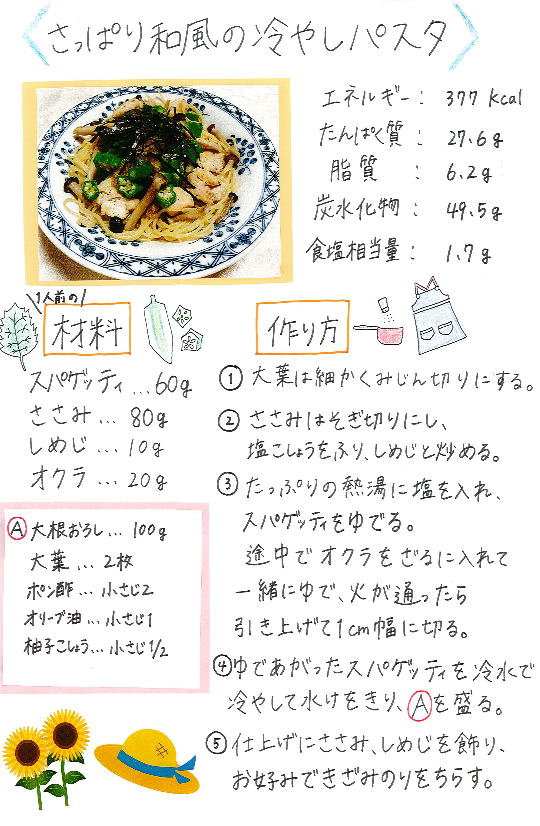 さっぱり和風の冷やしパスタ
エネルギー： 377 kcal
たんぱく質： 27.6g
脂質： 6.2g
炭水化物： 49.5g
食塩相当量： 1.7g
1人前の
材料
スパゲッティ…60g
ささみ… 80g
しめじ… 10g
オクラ… 20g
Ⓐ大根おろし… 100g
大葉… 2枚
ポン酢… 小さじ2
オリーブ油… 小さじ1
柚子こしょう… 小さじ1/2
作り方
① 大葉は細かくみじん切りにする。
② ささみはそぎ切りにし、
塩こしょうをふり、しめじと炒める。
③ たっぷりの熱湯に塩を入れ、
スパゲッティをゆでる。
途中でオクラをざるに入れて
一緒にゆで、火が通ったら
引き上げて1cm幅に切る。
④ゆであがったスパゲッティを冷水で
冷やして水けをきり、Ⓐを盛る。
⑤ 仕上げにささみ、しめじを飾り、
お好みできざみのりをちらす。